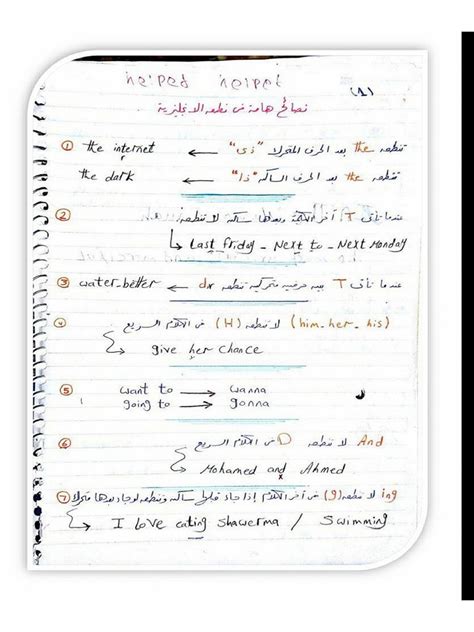 helped helpet
(1)
نصائح هامة فى نطق الانجليزية
① the internet ← "ذى" تنطق the بعد الحرف المتحرك
the dark ← "ذا" تنطق the بعد الحرف الساكن
② عندما تأتى T أخر الكلمة وبعدها ساكن لا تنطق
↳ Last friday - Next to - Next Monday
③ water-better ← عندما تأتى T بين حرفين متحركين تنطق
④ (him-her-his) لا تنطق (H) فى الكلام السريع
↳ give her chance
⑤ want to → wanna
going to → gonna
⑥ And لا تنطق D فى الكلام السريع
↳ Mohamed and Ahmed
x
⑦ ing لا تنطق (g) فى أخر الكلام إذا جاء
↳ I love eating shawerma / Swimming